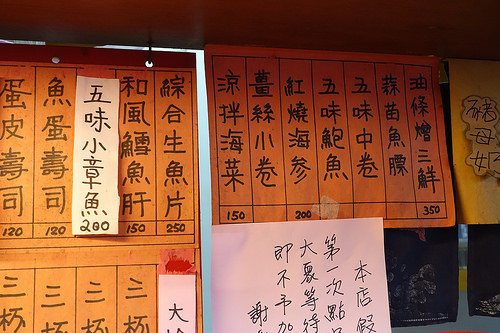 油條燴三鮮
350
蒜苗魚膘
五味中卷
五味鮑魚
紅燒海參
200
薑絲小卷
涼拌海菜
150
綜合生魚片
250
和風鱈魚肝
150
五味小章魚
200
魚蛋壽司
120
蛋皮壽司
120
三杯
三杯
三杯
三杯
三杯
大
本店
第一次點
大裏等待
即不予加
謝
豬母